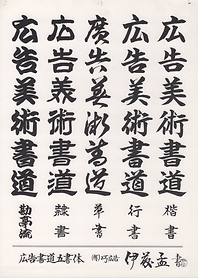 広告美術書道
楷書
広告美術書道
行書
廣告美術書道
草書
広告美術書道
隷書
広告美術書道
勘亭流
広告書道五書体 伊藤孟 書